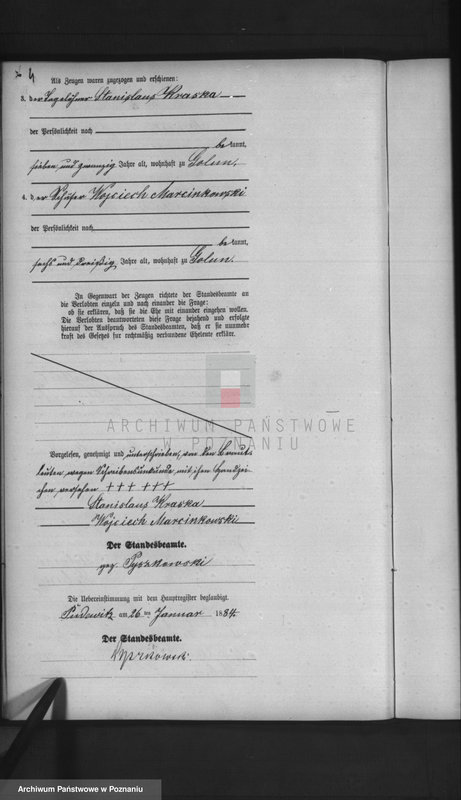 4
Als Zeugen waren zugezogen und erschienen:
3. der Tagelöhner Stanislaus Kraska
der Persönlichkeit nach
bekannt,
sieben und zwanzig Jahre alt, wohnhaft zu Golun,
4. der Schäfer Wojciech Marcinkowski
der Persönlichkeit nach
bekannt,
sechs und dreißig Jahre alt, wohnhaft zu Golun.
In Gegenwart der Zeugen richtete der Standesbeamte an
die Verlobten einzeln und nach einander die Frage:
ob sie erklären, daß sie die Ehe mit einander eingehen wollen.
Die Verlobten beantworteten diese Frage bejahend und erfolgte
hierauf der Ausspruch des Standesbeamten, daß er sie nunmehr
kraft des Gesetzes für rechtmäßig verbundene Eheleute erkläre.
ARCHIWUM PAŃSTWOWE
W POZNANIU
Vorgelesen, genehmigt und unterschrieben, von den Braut-
leuten wegen Schreibensunkunde mit ihren Handzei-
chen versehen +++ +++
Stanislaus Kraska
Wojciech Marcinkowski
Der Standesbeamte.
gez.
Die Uebereinstimmung mit dem Hauptregister beglaubigt.
Pudewitz am 26 ten Januar 1884.
Der Standesbeamte.
Archiwum Państwowe w Poznaniu